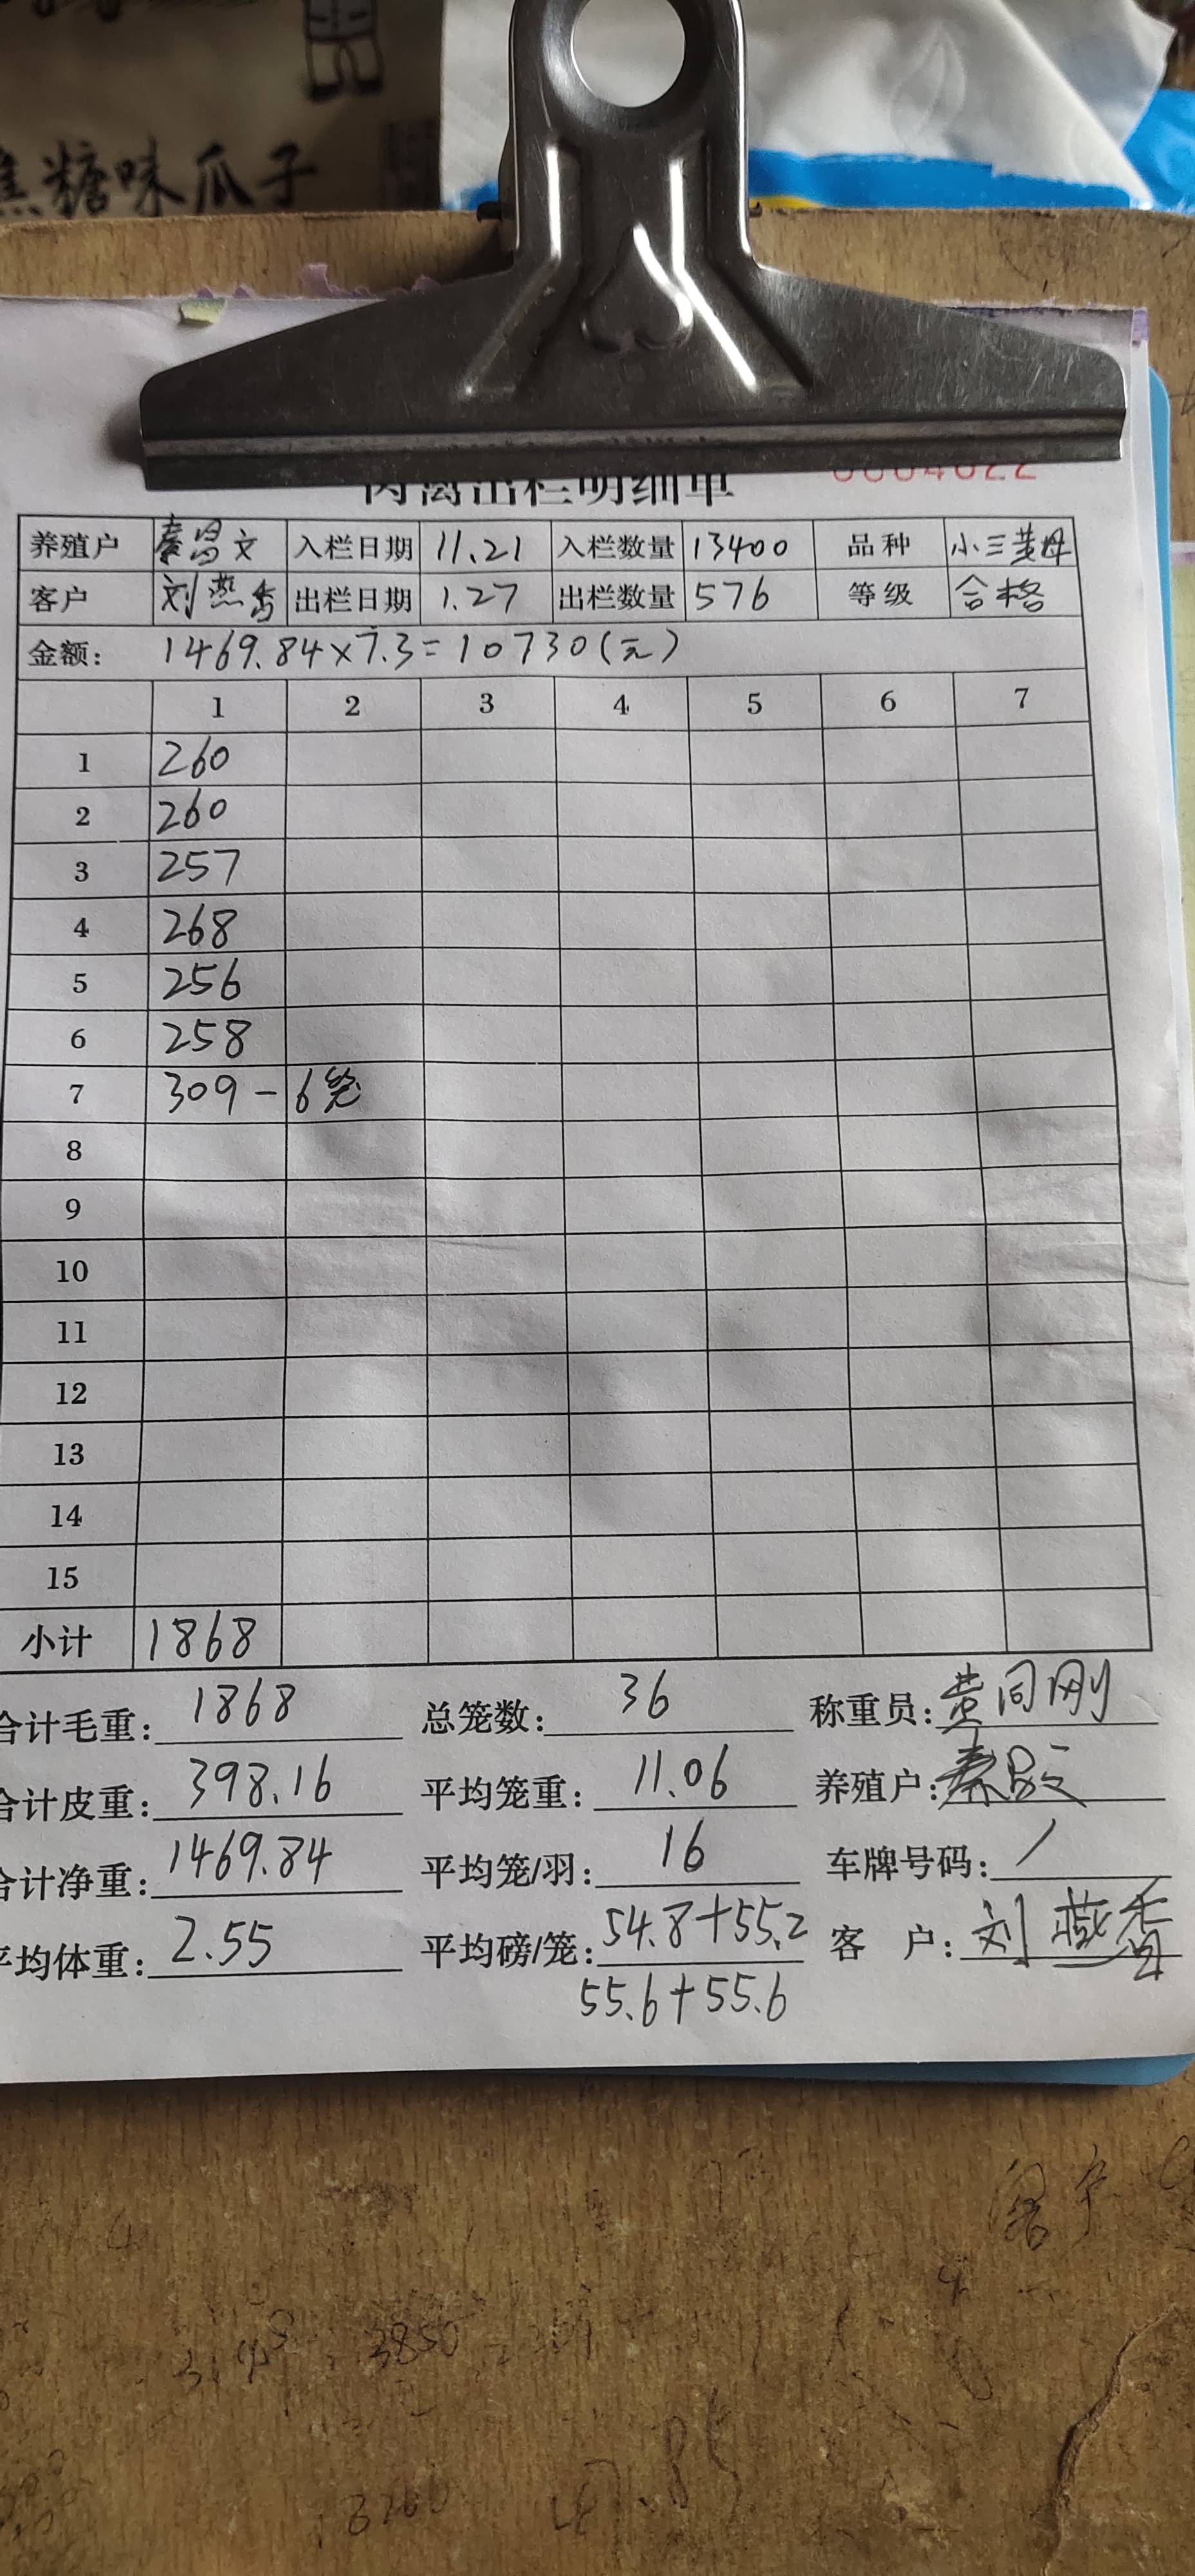 焦糖味瓜子
肉禽出栏明细单 0004622
养殖户 秦昌文 入栏日期 11.21 入栏数量 13400 品种 小三黄母
客户 刘燕香 出栏日期 1.27 出栏数量 576 等级 合格
金额: 1469.84×7.3=10730(元)
1 2 3 4 5 6 7
1 260
2 260
3 257
4 268
5 256
6 258
7 309-6笼
8
9
10
11
12
13
14
15
小计 1868
合计毛重: 1868 总笼数: 36 称重员: 黄同刚
合计皮重: 398.16 平均笼重: 11.06 养殖户: 秦昌文
合计净重: 1469.84 平均笼/羽: 16 车牌号码: /
平均体重: 2.55 平均磅/笼: 54.8+55.2 客户: 刘燕香
55.6+55.6
3850